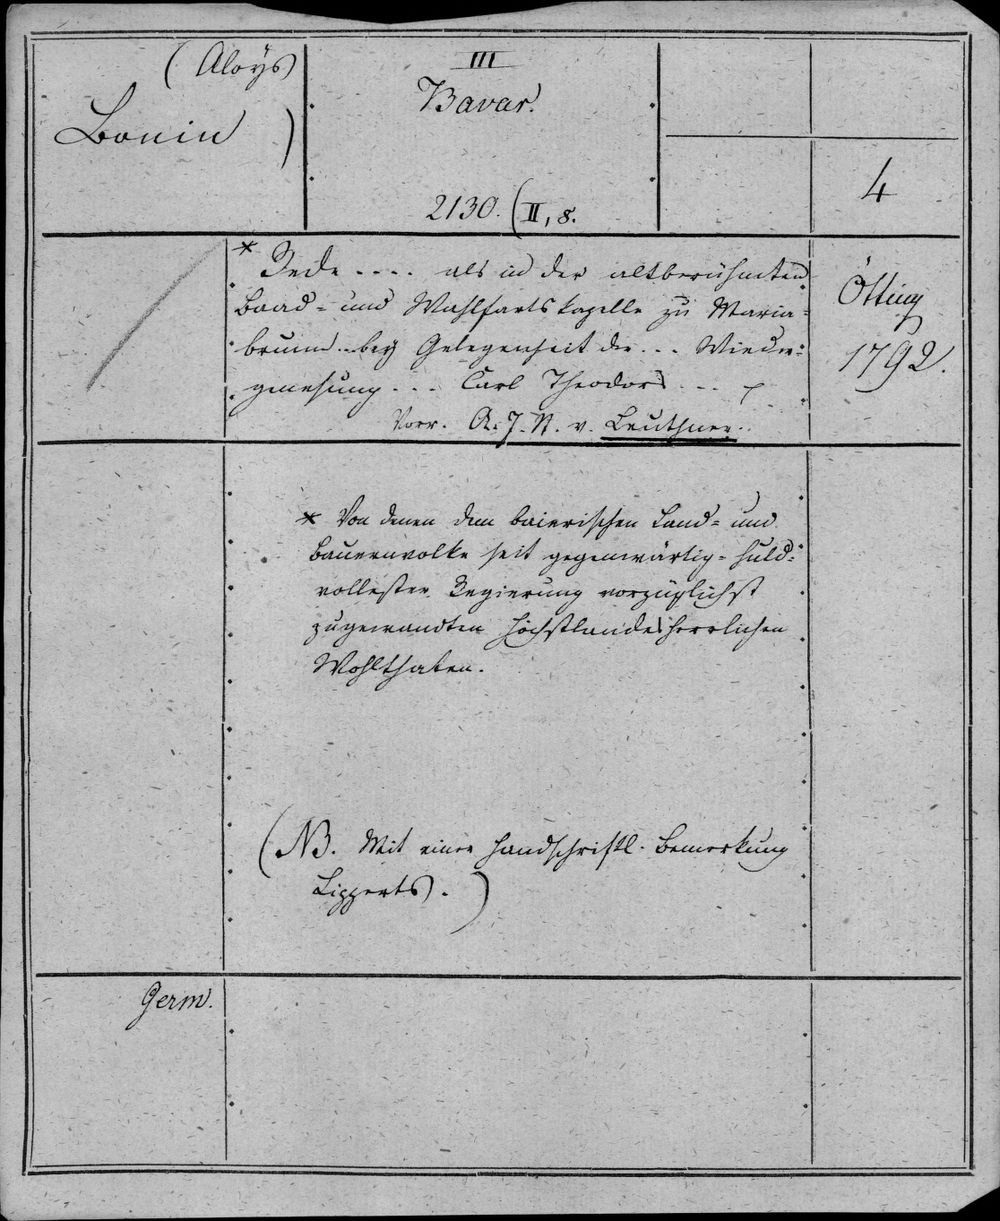 (Aloys
Bonin )
III
Bavar.
2130. (II, 8.
4
* Rede .... als in der altberühmten
Baad- und Wahlfartskapelle zu Maria-
brunn .. bey Gelegenheit der ... Wieder-
genesung ... Carl Theodors ...
Vorr. A. J. N. v. Leuthner.
Ötting
1792.
* Von denen dem baierischen Land- und
Bauernvolke seit gegenwärtig- huld-
vollester Regierung vorzüglichst
zugewandten höchstlandesherrlichen
Wohlthaten.
(NB. Mit einer handschriftl. Bemerkung
Lipperts.)
Germ.